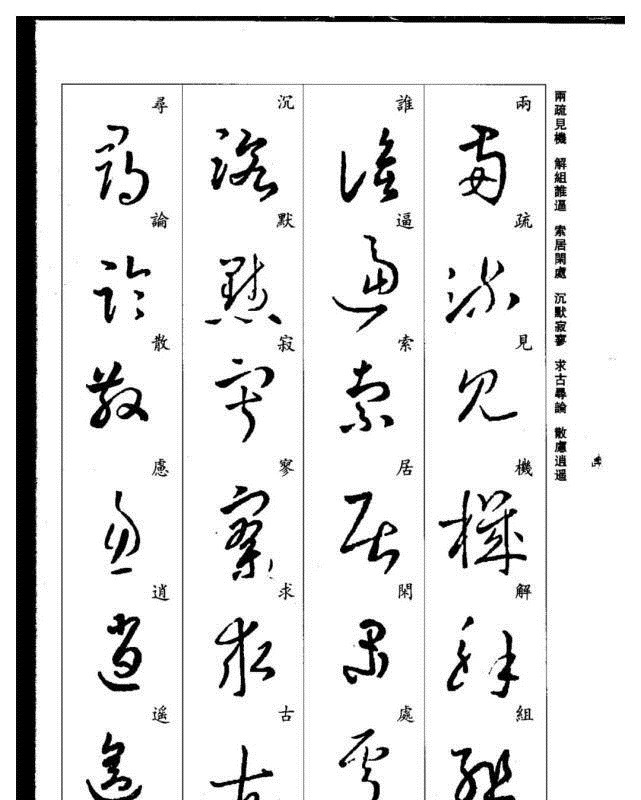 兩疏見機 解組誰逼 索居閑處 沉默寂寥 求古尋論 散慮逍遥
兩疏見機解組
誰逼索居閑處
沉默寂寥求古
尋論散慮逍遥